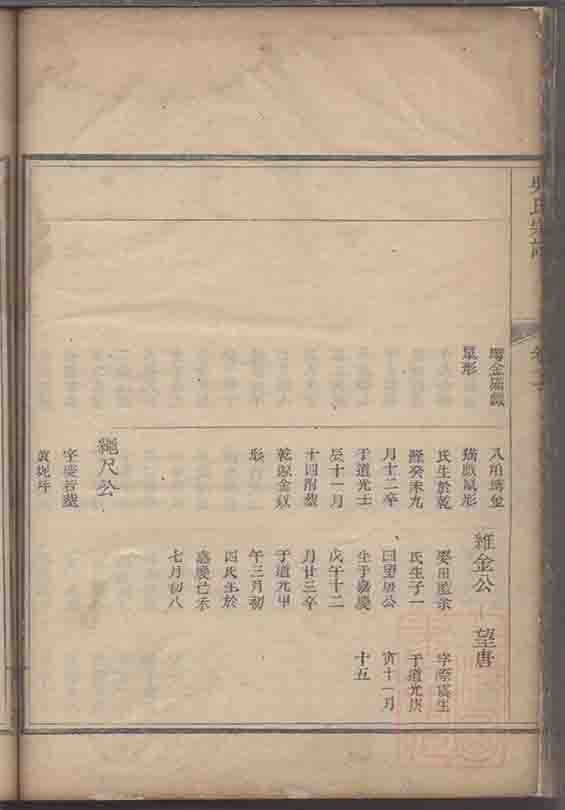 氏宗
金猫戯
鼠形
八角塆金
猫戯鼠形
氏生於乾
隆癸未九
月十二卒
于道光壬
辰十一月
十四附葬
乾塆金釵
形
繩尺公
字慶若葬
黃坭坪
維金公
娶田
氏生子一
曰望唐公
生于嘉慶
戊午十二
月廿三卒
于道光甲
午三月初
四氏生於
嘉慶己未
七月初八
望唐
字際虞生
于道光庚
寅十一月
十五